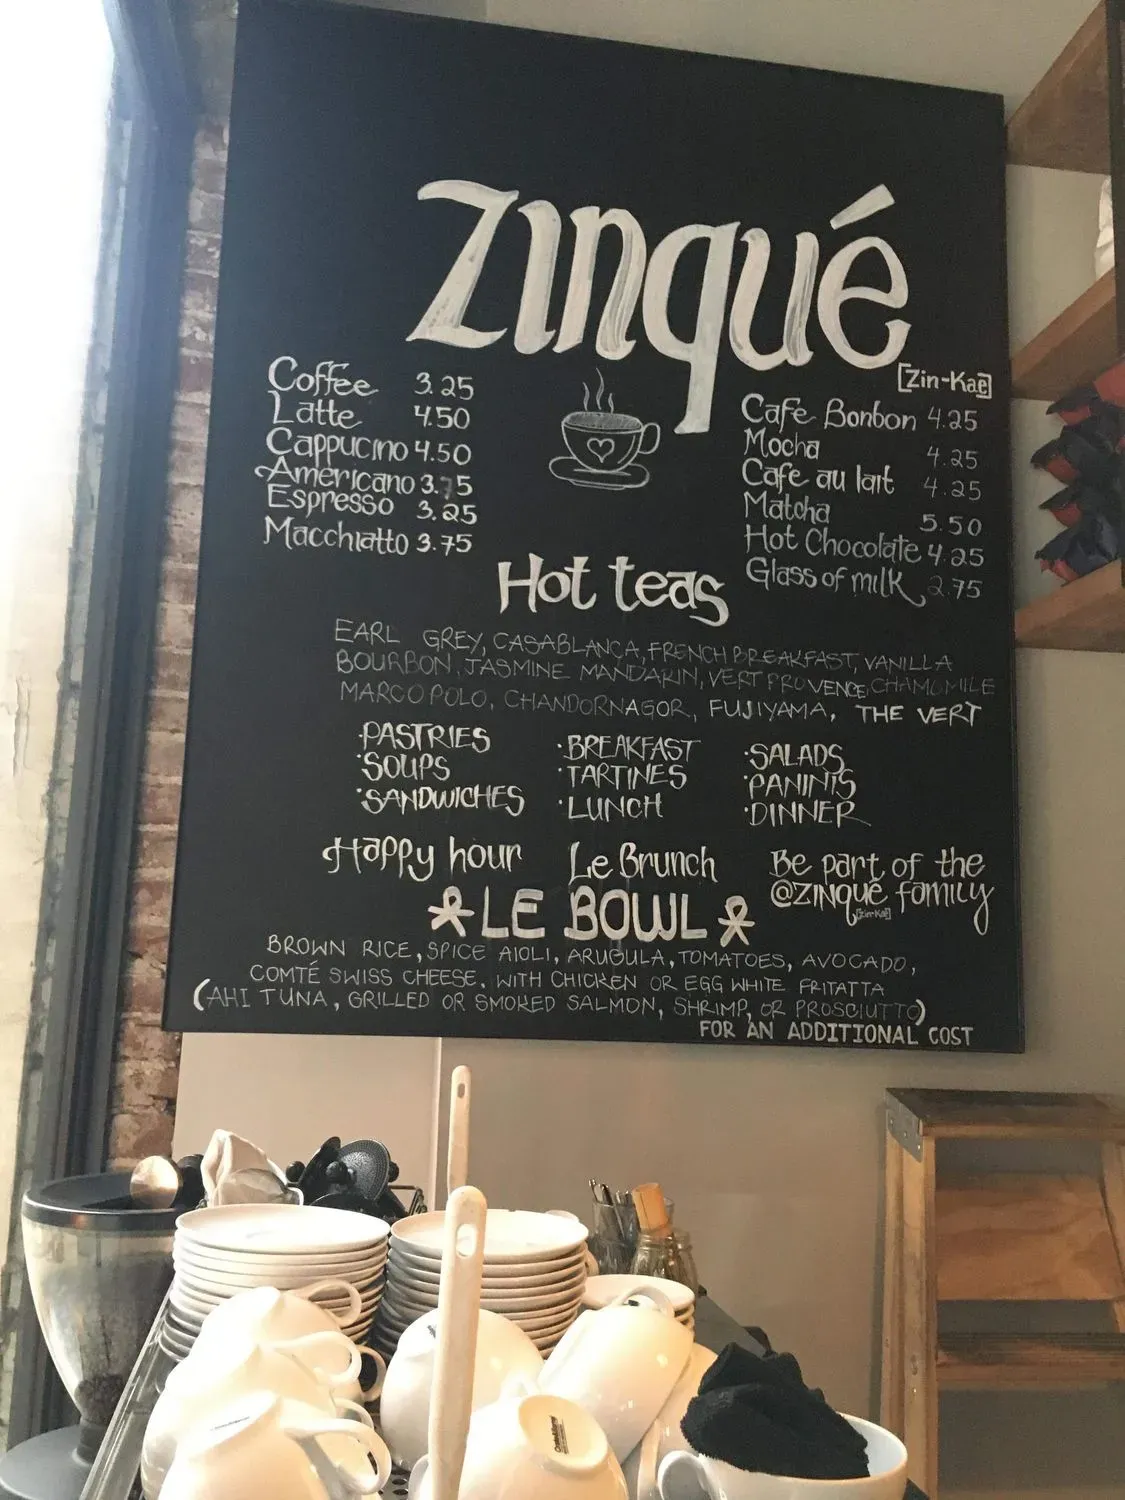 Zinqué
[Zin-Kae]
Coffee 3.25
Latte 4.50
Cappucino 4.50
Americano 3.75
Espresso 3.25
Macchiatto 3.75
Cafe Bonbon 4.25
Mocha 4.25
Cafe au lait 4.25
Matcha 5.50
Hot Chocolate 4.25
Glass of milk 2.75
Hot teas
EARL GREY, CASABLANCA, FRENCH BREAKFAST, VANILLA
BOURBON, JASMINE MANDARIN, VERT PROVENCE, CHAMOMILE
MARCO POLO, CHANDORNAGOR, FUJIYAMA, THE VERT
·PASTRIES
·SOUPS
·SANDWICHES
·BREAKFAST
·TARTINES
·LUNCH
·SALADS
·PANINIS
·DINNER
Happy hour
Le Brunch
Be part of the
@ZINQUÉ family
[Zin-Kae]
LE BOWL
BROWN RICE, SPICE AIOLI, ARUGULA, TOMATOES, AVOCADO,
COMTÉ SWISS CHEESE. WITH CHICKEN OR EGG WHITE FRITATTA
(AHI TUNA, GRILLED OR SMOKED SALMON, SHRIMP, OR PROSCIUTTO)
FOR AN ADDITIONAL COST